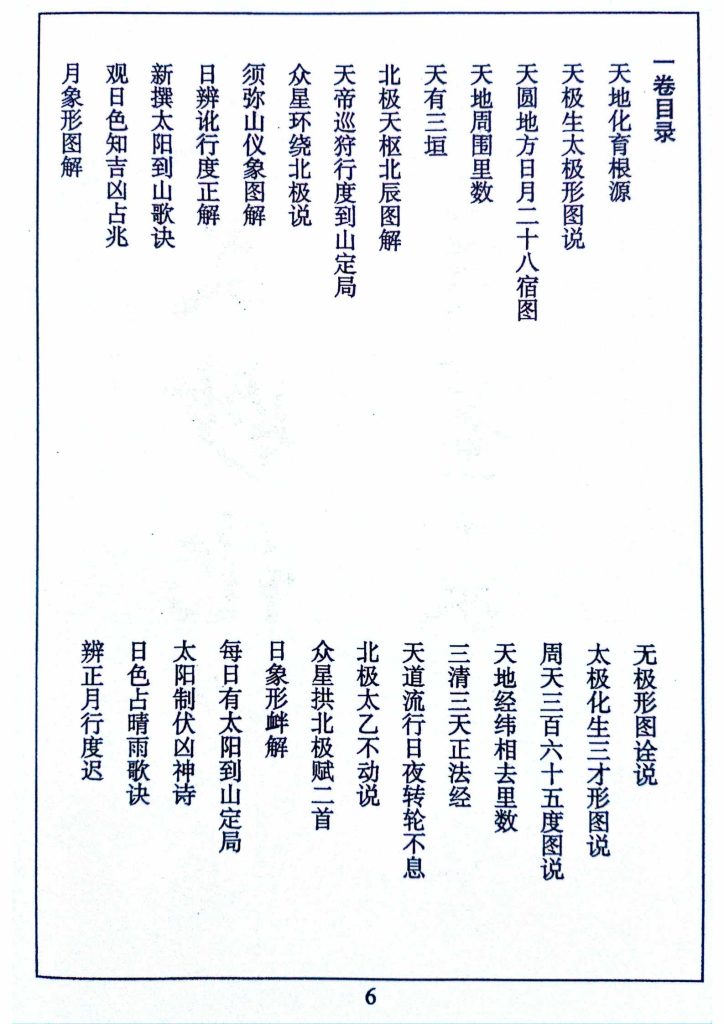 一卷目录
天地化育根源
无极形图诠说
天极生太极形图说
太极化生三才形图说
天圆地方日月二十八宿图
周天三百六十五度图说
天地周围里数
天地经纬相去里数
天有三垣
三清三天正法经
北极天枢北辰图解
天道流行日夜转轮不息
天帝巡狩行度到山定局
北极太乙不动说
众星环绕北极说
众星拱北极赋二首
须弥山仪象图解
日象形衅解
日辨讹行度正解
每日有太阳到山定局
新撰太阳到山歌诀
太阳制伏凶神诗
观日色知吉凶占兆
日色占晴雨歌诀
月象形图解
辨正月行度迟
6